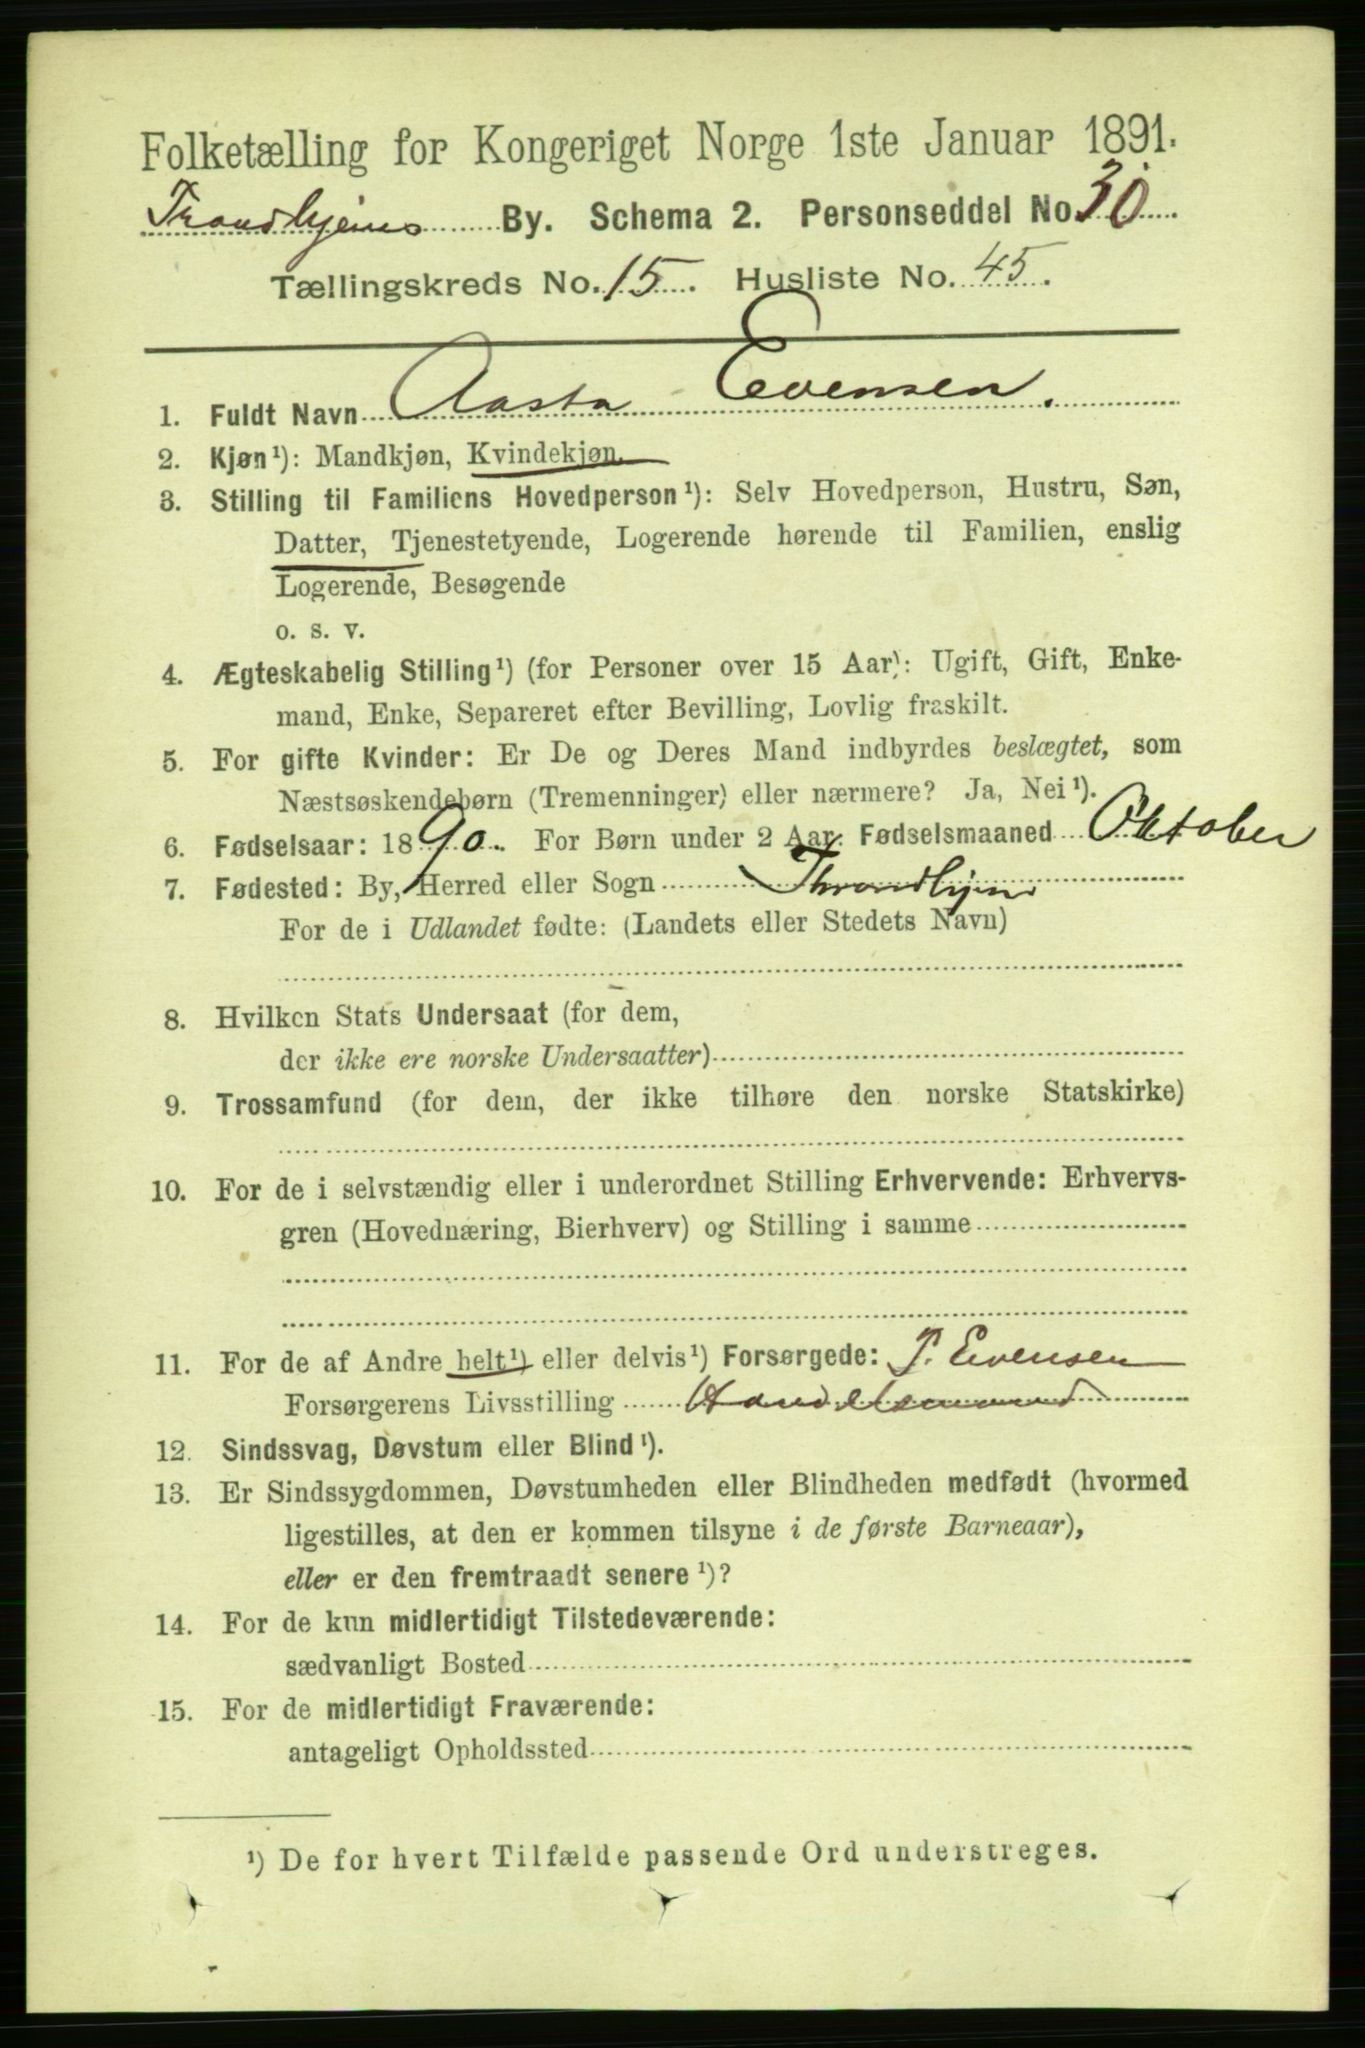 Folketælling for Kongeriget Norge 1ste Januar 1891.
Trondhjems By. Schema 2. Personseddel No. 30
Tællingskreds No. 15. Husliste No. 45.
1. Fuldt Navn Aasta Evensen.
2. Kjøn¹): Mandkjøn, Kvindekjøn.
3. Stilling til Familiens Hovedperson¹): Selv Hovedperson, Hustru, Søn,
Datter, Tjenestetyende, Logerende hørende til Familien, enslig
Logerende, Besøgende
o. s. v.
4. Ægteskabelig Stilling¹) (for Personer over 15 Aar): Ugift, Gift, Enke-
mand, Enke, Separeret efter Bevilling, Lovlig fraskilt.
5. For gifte Kvinder: Er De og Deres Mand indbyrdes beslægtet, som
Næstsøskendebørn (Tremenninger) eller nærmere? Ja, Nei¹).
6. Fødselsaar: 1890. For Børn under 2 Aar: Fødselsmaaned Oktober
7. Fødested: By, Herred eller Sogn Throndhjem
For de i Udlandet fødte: (Landets eller Stedets Navn)
8. Hvilken Stats Undersaat (for dem,
der ikke ere norske Undersaatter)
9. Trossamfund (for dem, der ikke tilhøre den norske Statskirke)
10. For de i selvstændig eller i underordnet Stilling Erhvervende: Erhvervs-
gren (Hovednæring, Bierhverv) og Stilling i samme
11. For de af Andre helt¹) eller delvis¹) Forsørgede: P. Evensen
Forsørgerens Livsstilling Handelsmand
12. Sindssvag, Døvstum eller Blind¹).
13. Er Sindssygdommen, Døvstumheden eller Blindheden medfødt (hvormed
ligestilles, at den er kommen tilsyne i de første Barneaar),
eller er den fremtraadt senere¹)?
14. For de kun midlertidigt Tilstedeværende:
sædvanligt Bosted
15. For de midlertidigt Fraværende:
antageligt Opholdssted
¹) De for hvert Tilfælde passende Ord understreges.